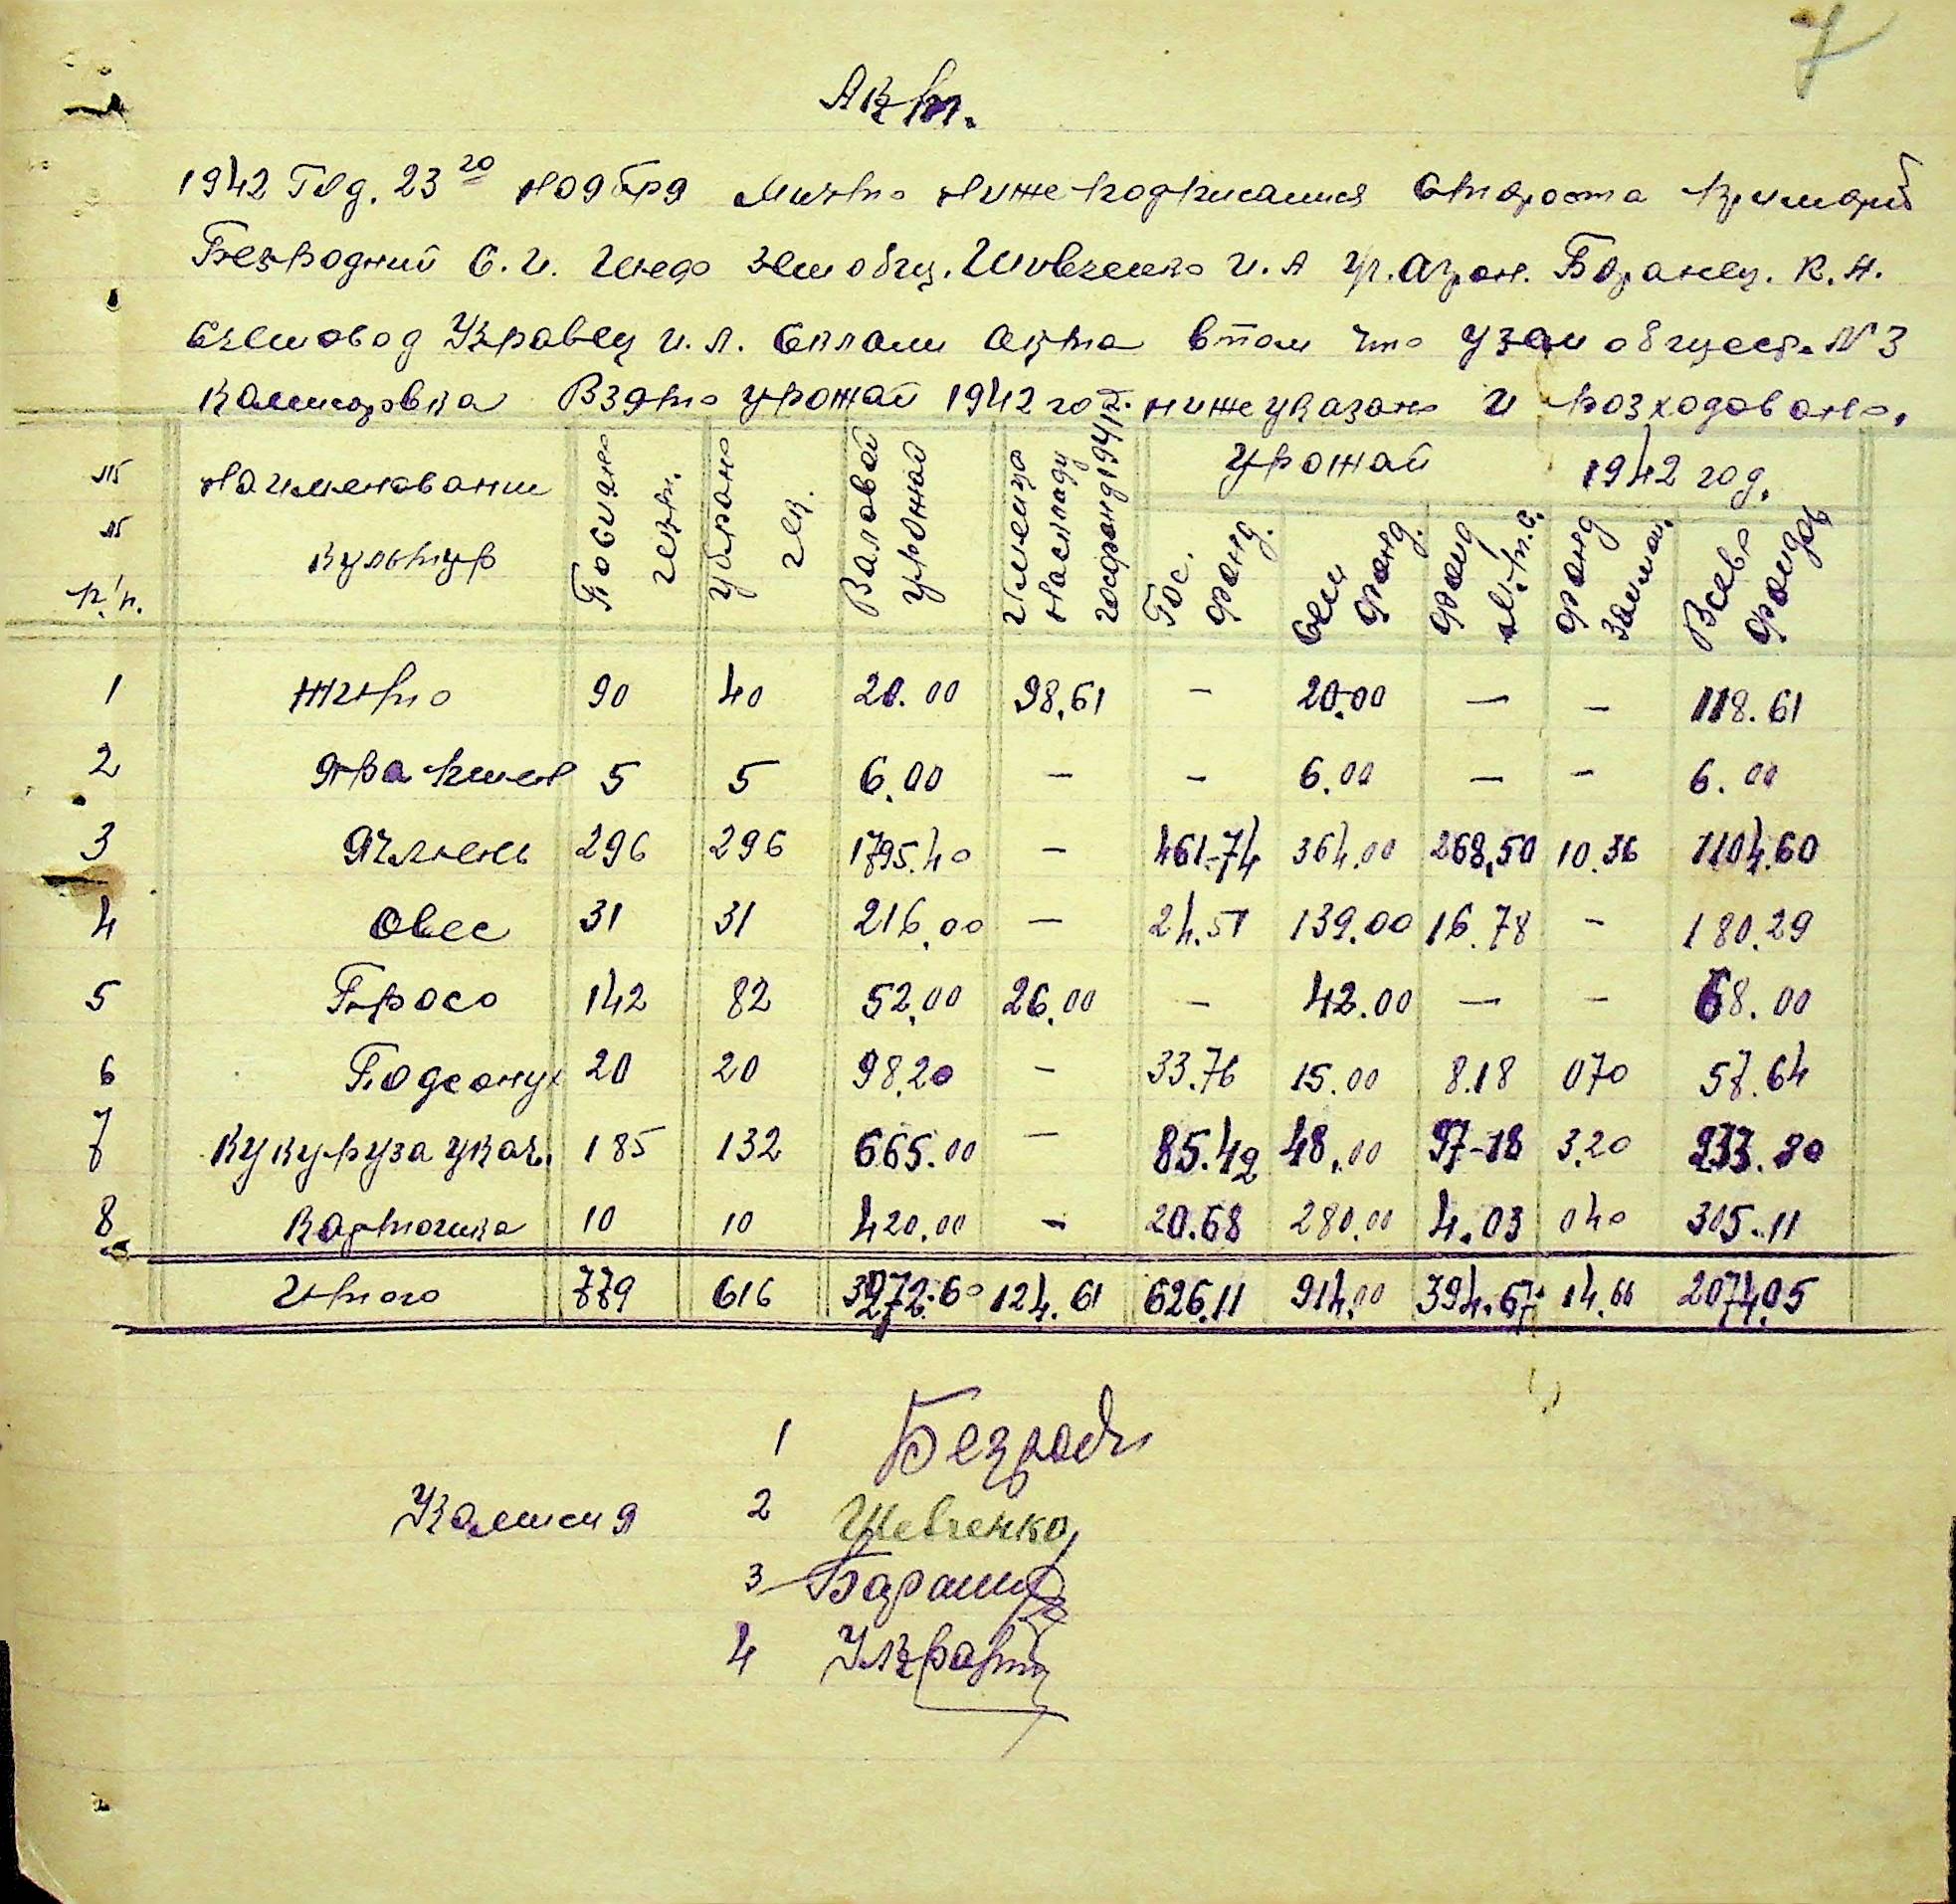 7
Акт.
1942 Год. 23го ноября Мы ниже подписаниися Староста примарй
Безродний С. И. Шевченко И. А Баранец. К. Н.
Счетовод Укравец И. Л. склали акта втом что узем общест. № 3
Взято урожай 1942 год. ниже указано и розходовано.
№ № п/п. Наименовании культур Посияно гект. Убрано гек. Валовой урожай Имеица наскладу госфонд 1941 г. Урожай 1942 год.
Гос. фонд. Сем фонд. фонд м.т.с. фонд Всево фондов
1 Жито 90 40 20.00 98.61 — 20.00 — — 118.61
2 Яра пшен 5 5 6.00 — — 6.00 — — 6.00
3 Ячмень 296 296 1795.40 — 461-74 364.00 268,50 10.36 1104.60
4 Овес 31 31 216.00 — 24.51 139.00 16.78 — 180.29
5 Просо 142 82 52.00 26.00 — 42.00 — — 68.00
6 Подсонух 20 20 98.20 — 33.76 15.00 8.18 070 57.64
7 Кукуруза укач. 185 132 665.00 — 85.42 48.00 97-18 3.20 233.80
8 Картошка 10 10 420.00 — 20.68 280.00 4.03 040 305.11
Итого 779 616 3272.60 124.61 626.11 914.00 394.67 14.66 2074.05
1 Безродн
Камисия 2 Шевченко
3 Баранец
4 Укравец